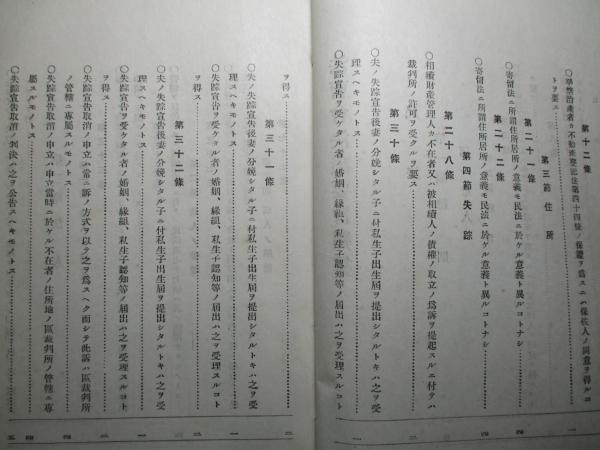 第十二條
○準禁治產者カ不動產登記法第四十四條ノ保證ヲ爲スニハ保佐人ノ同意ヲ得ルコ
トヲ要ス
第三節 住所
第二十一條
○寄留法ニ所謂住所居所ノ意義モ民法ニ於ケル意義ト異ルコトナシ
第二十二條
○寄留法ニ所謂住所居所ノ意義モ民法ニ於ケル意義ト異ルコトナシ
第四節 失踪
第二十八條
○相續財產管理人カ不在者又ハ被相續人ノ債權ノ取立ノ爲訴ヲ提起スルニ付テハ
裁判所ノ許可ヲ受クルヲ要ス
第三十條
○夫ノ失踪宣告後妻ノ分娩シタル子ニ付私生子出生屆ヲ提出シタルトキハ之ヲ受
理スヘキモノトス
○失踪宣告ヲ受ケタル者ノ婚姻、緣組、私生子認知等ノ屆出ハ之ヲ受理スルコト
ヲ得ス
第三十一條
○夫ノ失踪宣告後妻ノ分娩シタル子ニ付私生子出生屆ヲ提出シタルトキハ之ヲ受
理スヘキモノトス
○失踪宣告ヲ受ケタル者ノ婚姻、緣組、私生子認知等ノ屆出ハ之ヲ受理スルコト
ヲ得ス
第三十二條
○夫ノ失踪宣告後妻ノ分娩シタル子ニ付私生子出生屆ヲ提出シタルトキハ之ヲ受
理スヘキモノトス
○失踪宣告ヲ受ケタル者ノ婚姻、緣組、私生子認知等ノ屆出ハ之ヲ受理スルコト
ヲ得ス
○失踪宣告取消ノ申立ハ常ニ訴ノ方式ヲ以テ之ヲ爲スヘク而シテ此訴ハ區裁判所
ノ管轄ニ專屬スルモノトス
○失踪宣告取消ノ申立ハ申立當時ニ於ケル不在者ノ住所地ノ區裁判所ノ管轄ニ專
屬スルモノトス
○失踪宣告取消ノ判決ハ之ヲ公吿スヘキモノトス